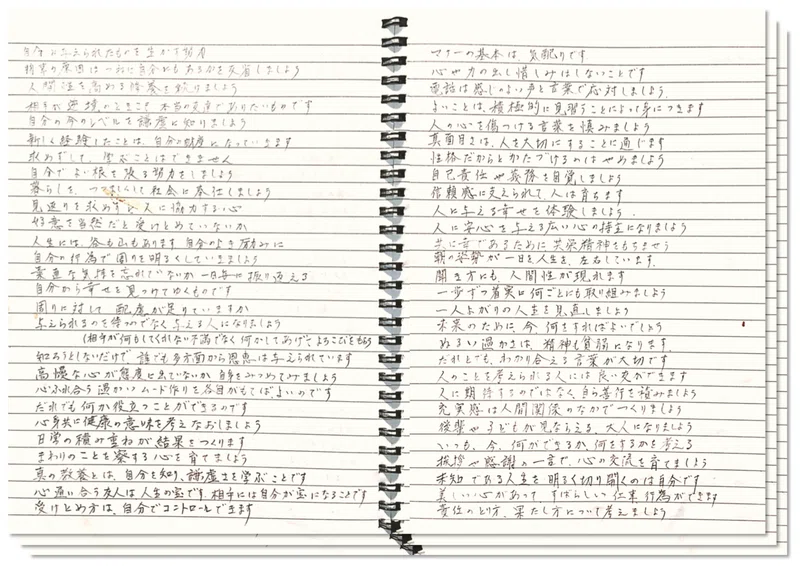 自分に与えられたものを生かす努力
物事の原因は一緒に自分にもあるかを反省しましょう
人間性を高める修養を続けましょう
相手が逆境のときこそ本当の友達でありたいものです
自分の今のレベルを謙虚に知りましょう
新しく経験したことは、自分の財産になっていきます
求めずして、学ぶことはできません
自分でよい根を張る努力をしましょう
暮らしを、つつましくして社会に奉仕しましょう
見返りを求めず、人に協力する心
好意を当然だと受けとめていないか
人生には、谷も山もあります 自分のよき励みに
自分の行為で周りを明るくしていきましょう
素直な気持を忘れていないか 一日毎に振り返える
自分から幸せを見つけてゆくものです
周りに対して 配慮が足りていますか
与えられるのを待つのでなく与える人になりましょう
(相手が何もしてくれない不満でなく何かしてあげてよろこびをもらう
知ろうとしないだけで 誰でも多方面から恩恵は与えられています
高慢な心が態度に出ていないか 自身をみつめてみましょう
心ふれ合う 温かいムード作りを各自がもてばよいのです
だれでも何か役立つことができるのです
心身共に健康の意味を考えなおしましょう
日常の積み重ねが 結果をつくります
まわりのことを察する心を育てましょう
真の教養とは、自分を知り、謙虚さを学ぶことです
心通い合う友人は人生の宝です、相手には自分が宝になることです
受けとめ方は、自分でコントロールできます
マナーの基本は、気配りです
心や力の出し惜しみはしないことです
電話は感じのよい声と言葉で応対しましょう
よいことは、積極的に見習うことによって身につきます
人の心を傷つける言葉を慎みましょう
真面目さは、人を大切にすることに通じます
性格だからとかたづけるのはやめましょう
自己責任や義務を自覚しましょう
信頼感に支えられて、人は育ちます
人に与える幸せを体験しましょう.
人に安心を与える広い心の持主になりましょう
共に幸であるために共栄精神をもちましょう
朝の姿勢が一日を人生を、左右しています.
聞き方にも、人間性が現れます
一歩ずつ着実に何ごとにも取り組みましょう
一人よがりの人生を見直しましょう
未来のために、今何をすればよいでしょう
ぬるい温かさは、精神も貧弱になります
だれとでも、わかり合える言葉が大切です
人のことを考えられる人には良い友ができます
人に期待するのではなく自ら善行を積みましょう
充実感は人間関係のなかでつくりましょう
後輩や子どもが見ならえる、大人になりましょう
いつも、今、何ができるか、何をするかを考える
挨拶や感謝の一言で、心の交流を育てましょう
未知である人生を明るく切り開くのは自分です
美しい心があって、すばらしい仕業行為ができます
責任のとり方、果たし方について考えましょう